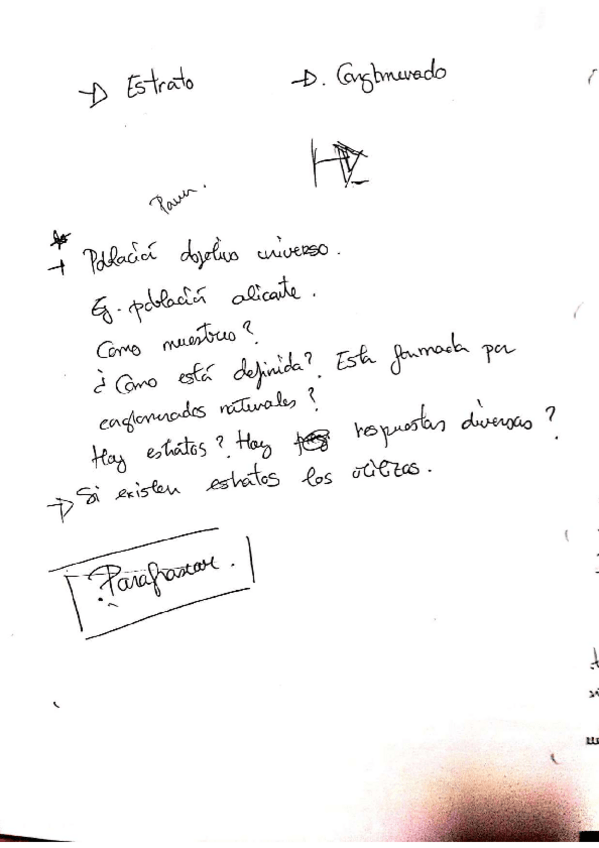 → Estrato → Conglomerado
* → Población objetivo universo.
Ej. población alicante.
Como muestreo?
¿Como está definida? Esta formada por
conglomerados naturales?
Hay estratos? Hay respuestas diversas?
→ Si existen estratos los utilizas.
Parafrasear.